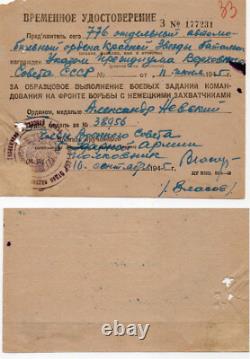 ВРЕМЕННОЕ УДОСТОВЕРЕНИЕ
З № 177231
Предъявитель сего 776 отдельный автомо-
бильный ордена Красной Звезды батальон
награжден Указом Президиума Верховного
Совета СССР от 11 июня 1945 г.
ЗА ОБРАЗЦОВОЕ ВЫПОЛНЕНИЕ БОЕВЫХ ЗАДАНИЙ КОМАН-
ДОВАНИЯ НА ФРОНТЕ БОРЬБЫ С НЕМЕЦКИМИ ЗАХВАТЧИКАМИ
Орденом, медалью Александр Невский
Орден медаль за № 38956
Член Военного Совета
Ударной армии
полковник
10 сентября 1945 г.
/Власов/
33